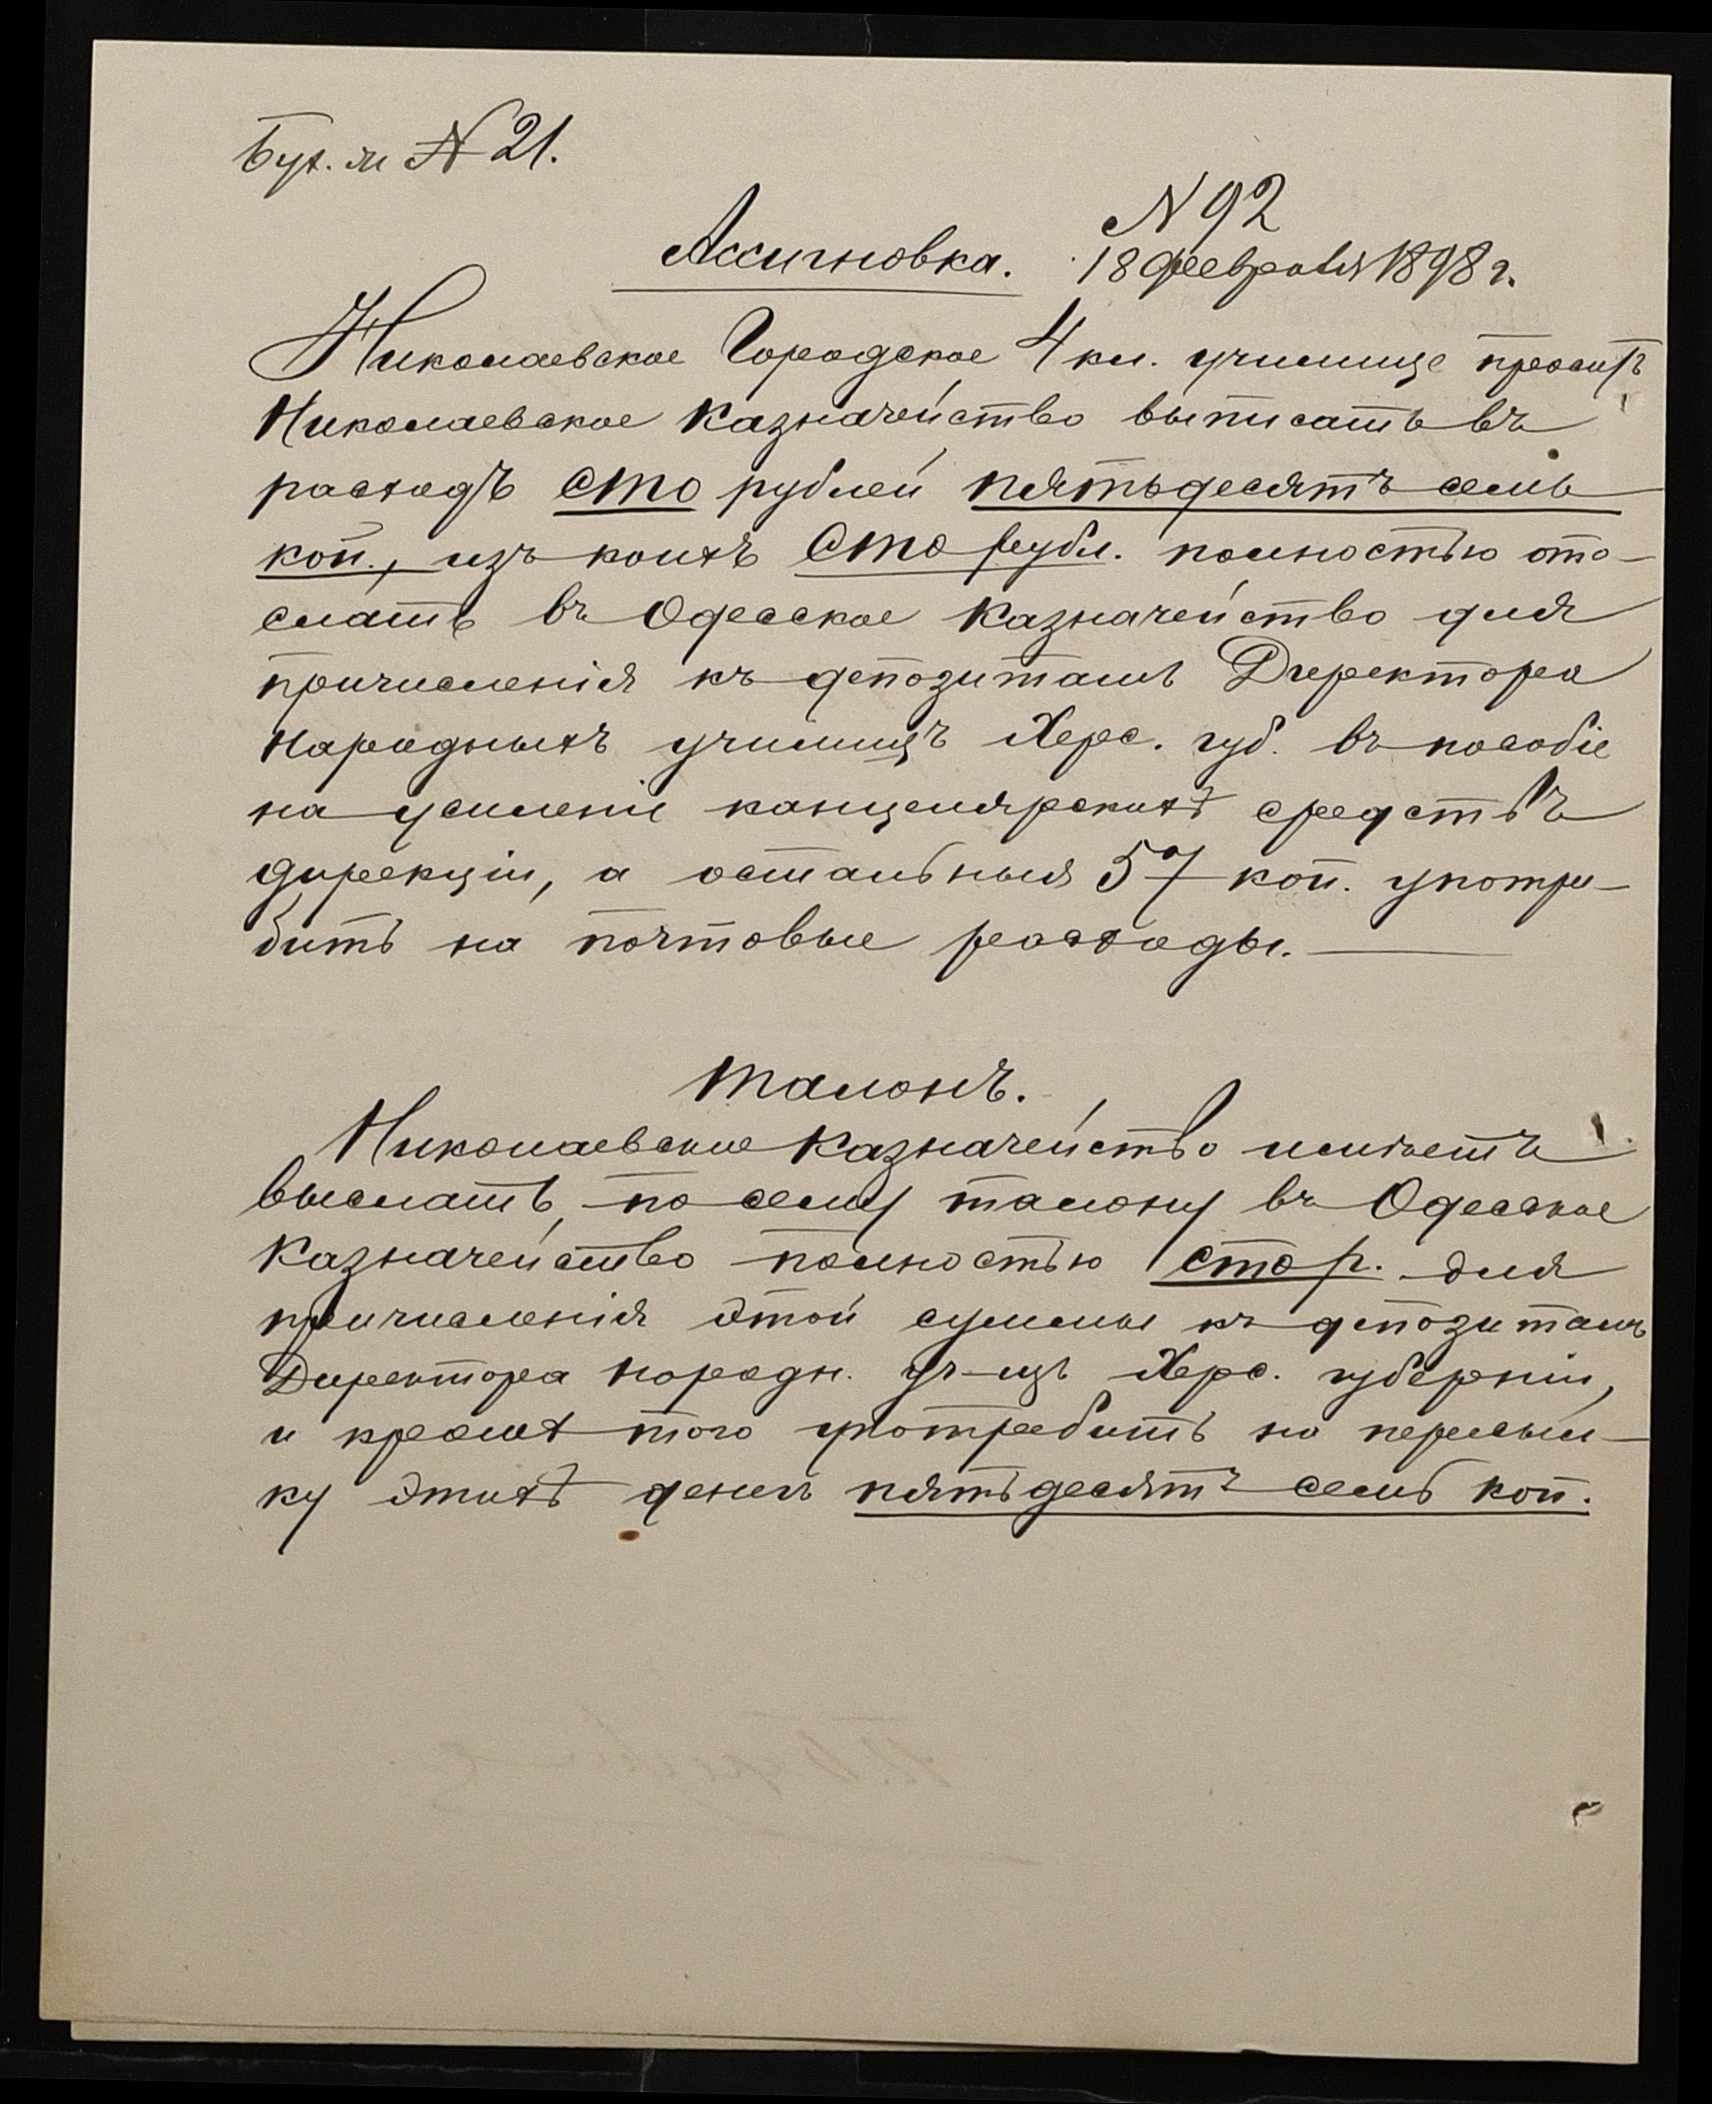 Бух. м № 21.
№ 92
Ассигновка. 18 февраля 1898 г.
Николаевское Городское 4 кл. училище проситъ
Николаевское Казначейство выписать въ
расходъ сто рублей пятьдесятъ семь
коп., изъ коихъ сто рубл. полностью ото-
слать въ Одесское Казначейство для
причисленія къ депозитамъ Директора
Народныхъ училищъ Херс. губ. въ пособіе
на усиленіе канцелярскихъ средствъ
дирекціи, а остальныя 57 коп. употре-
бить на почтовые расходы.
Талонъ.
Николаевское Казначейство имѣетъ
выслать, по сему талону въ Одесское
Казначейство полностью сто р. для
причисленія этой суммы къ депозитамъ
Директора народн. уч-щъ Херс. губерніи,
и кромѣ того употребить на пересыл-
ку этихъ денегъ пятьдесятъ семь коп.